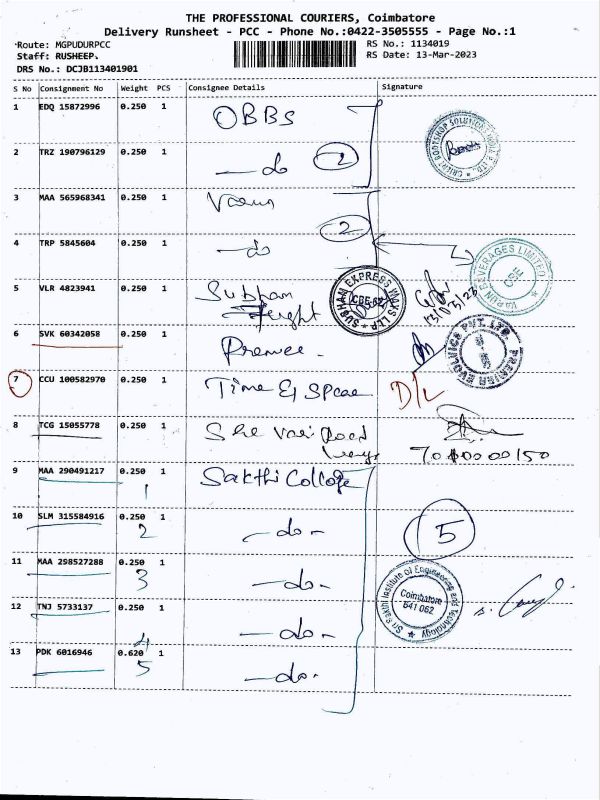 THE PROFESSIONAL COURIERS, Coimbatore
Delivery Runsheet - PCC - Phone No.:0422-3505555 - Page No.:1
Route: MGPUDURPCC
RS No.: 1134019
Staff: RUSHEEP.
RS Date: 13-Mar-2023
DRS No.: DCJB113401901
S No Consignment No Weight PCS Consignee Details Signature
1 EDQ 15872996 0.250 1 OBBS
2 TRZ 190796129 0.250 1 —do 2
3 MAA 565968341 0.250 1 Varun
4 TRP 5845604 0.250 1 —do 2
VARUN BEVERAGES LIMITED
5 VLR 4823941 0.250 1 Subham
SUBHAN EXPRESS WAYS LLP
CBE-62
13/03/23
6 SVK 60342058 0.250 1
PREMIER EVOLVICS PVT. LTD.
7 CCU 100582970 0.250 1 Time & Space D/L
8 TCG 15055778 0.250 1
9 MAA 290491217 0.250 1 Sakthi College
1
10 SLM 315584916 0.250 1 —do- 5
2
11 MAA 298527288 0.250 1 —do-
3
Sri Sakthi Institute of Engineering and Technology
Coimbatore
641 062
12 TNJ 5733137 0.250 1 —do-
4
13 PDK 6016946 0.620 1 —do-
5